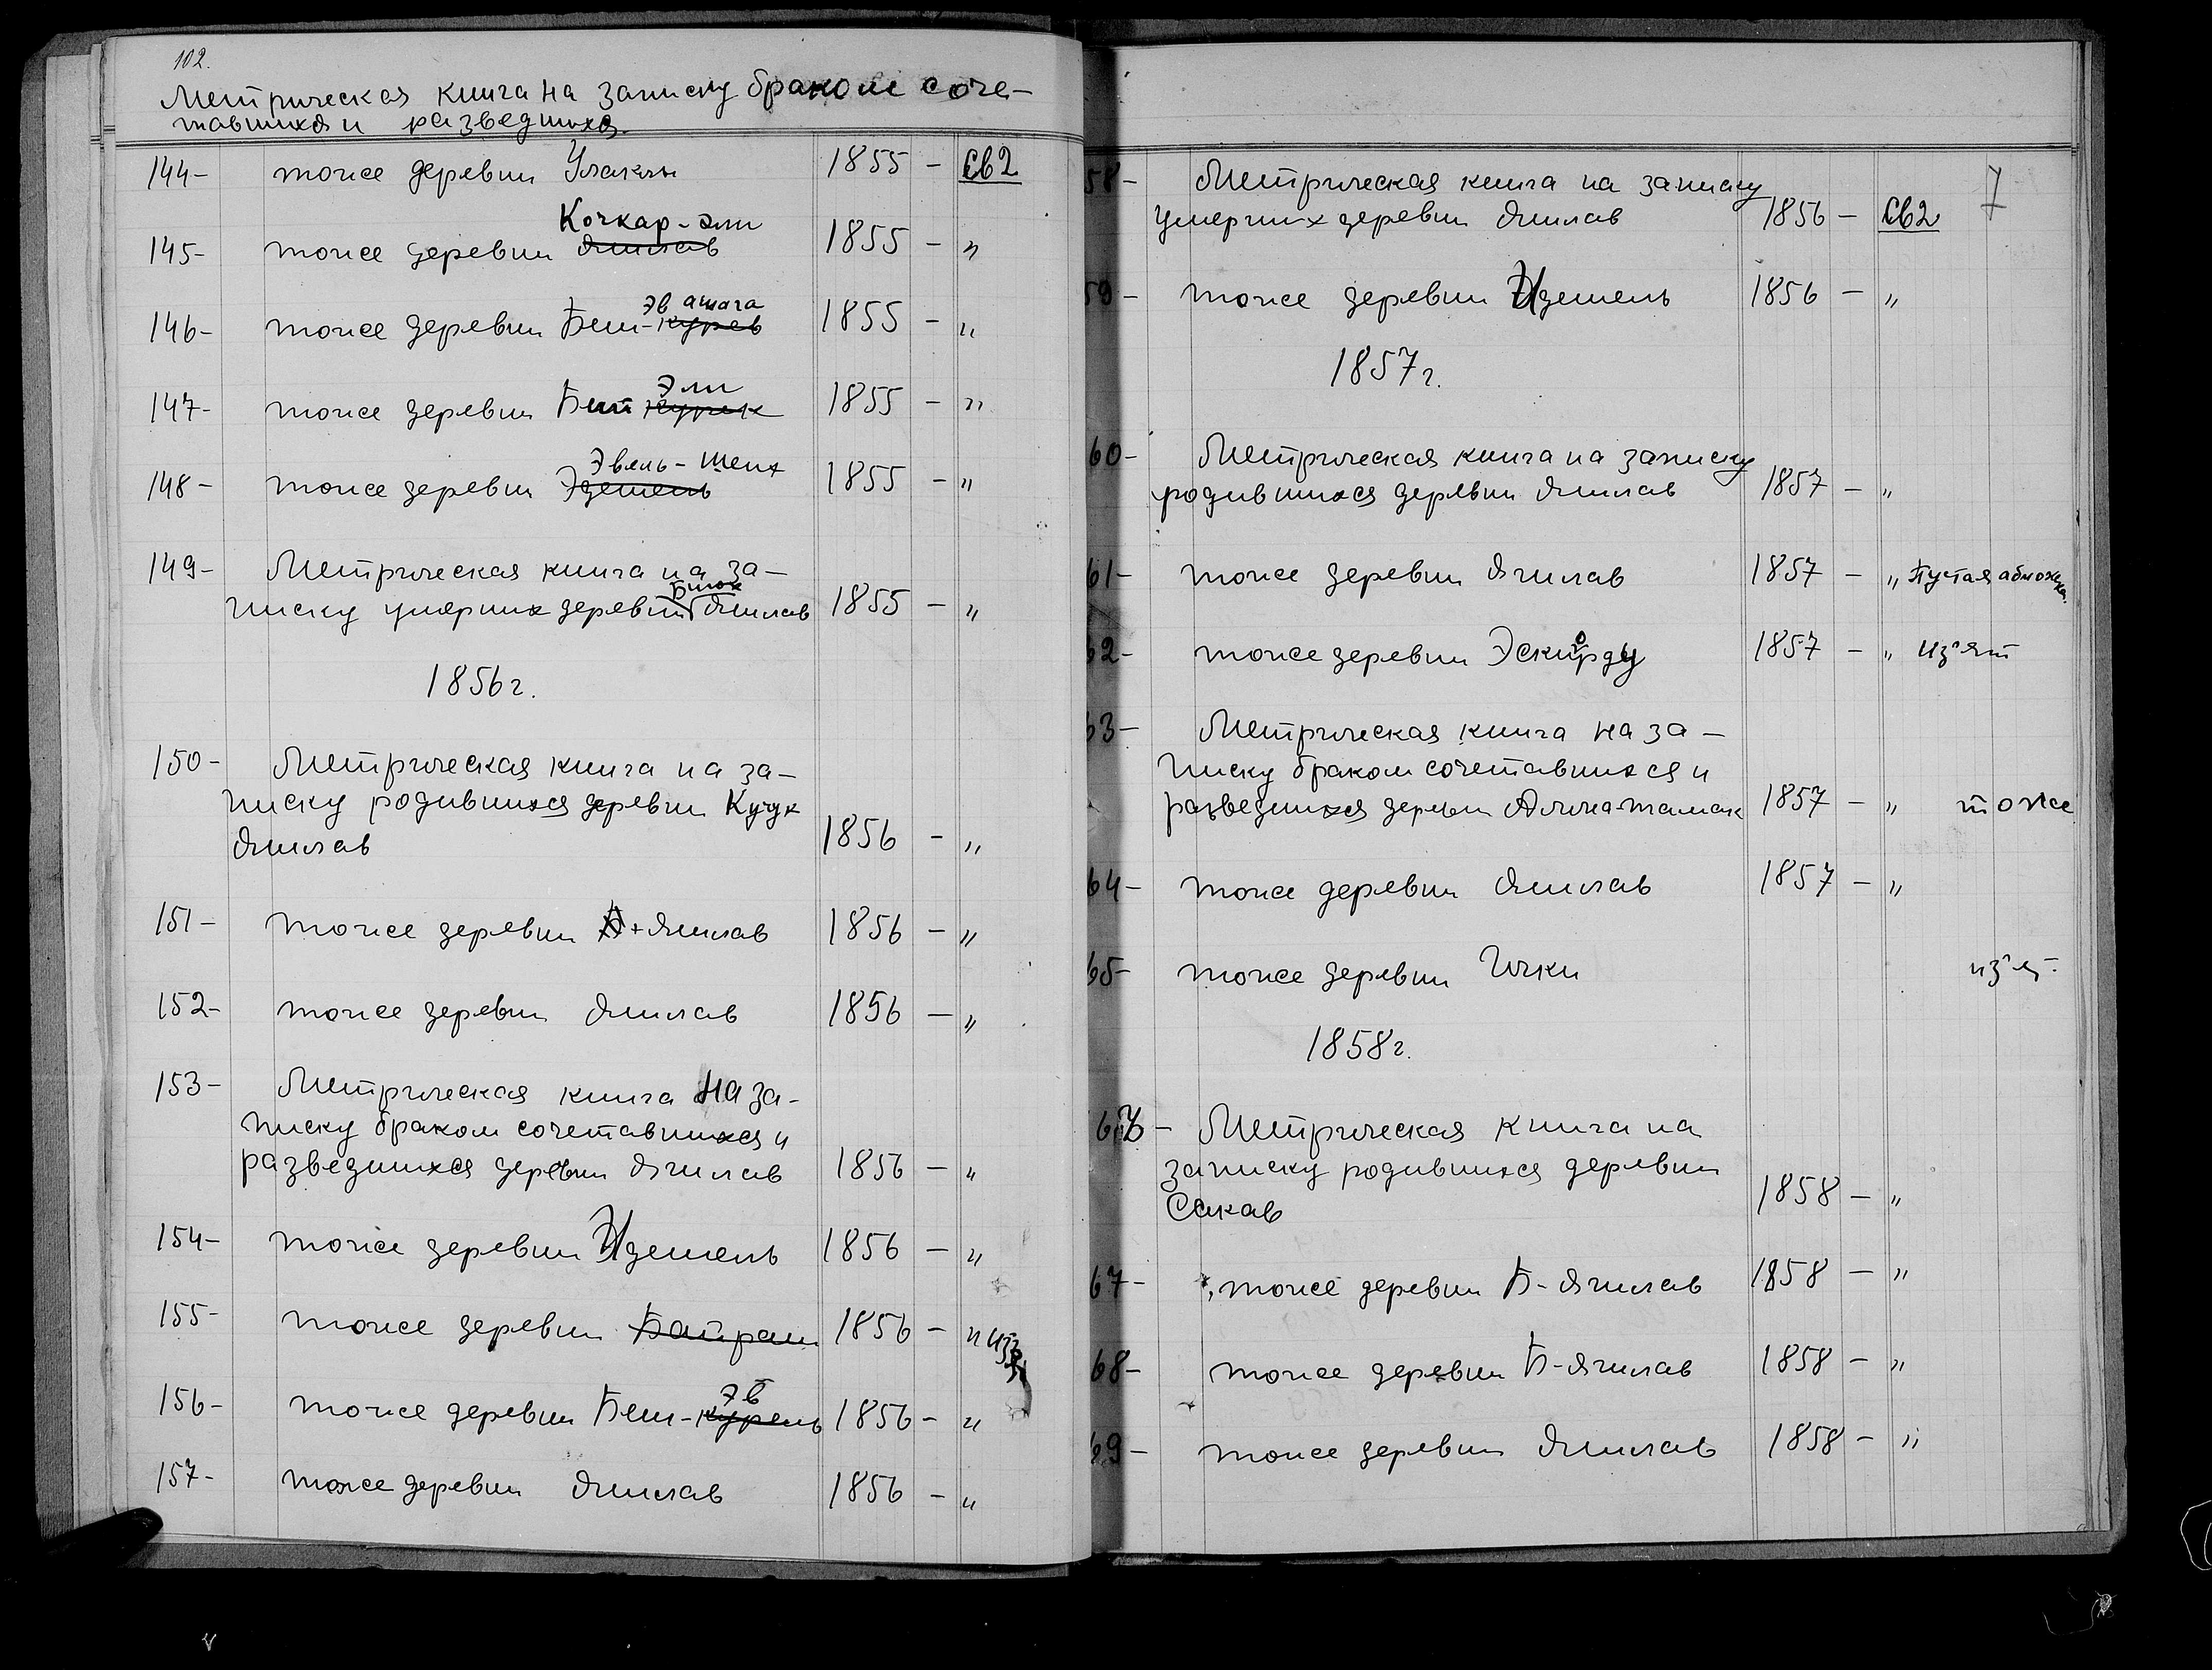 102.
Метрическая книга на записку браком соче-
тавшихся и разведшихся.
144- тоже деревни Улаклы 1855 - Св2
Кочкар-эли
145- тоже деревни Яшлав 1855 - "
Эв ашага
146- тоже деревни Беш-курев 1855 - "
Эли
147- тоже деревни Бит 1855 - "
Эвель-шейх
148- тоже деревни Эдешель 1855 - "
149- Метрическая книга на за-
Биюк
писку умерших деревни Яшлав 1855 - "
1856 г.
150- Метрическая книга на за-
писку родившихся деревни Кучук
Яшлав 1856 - "
151- тоже деревни Яшлав 1856 - "
152- тоже деревни Яшлав 1856 - "
153- Метрическая книга на за-
писку браком сочетавшихся и
разведшихся деревни Яшлав 1856 - "
154- тоже деревни Идешель 1856 - "
155- тоже деревни Байраш 1856 - "
Эв
156- тоже деревни Беш-курень 1856 - "
157- тоже деревни Яшлав 1856 - "
7
58- Метрическая книга на записку
умерших деревни Яшлав 1856 - Св2
59- тоже деревни Идешель 1856 - "
1857 г.
60- Метрическая книга на записку
родившихся деревни Яшлав 1857 - "
61- тоже деревни Яшлав 1857 - " Пустая обложка.
62- тоже деревни Эскиорду 1857 - " из'ят
63- Метрическая книга на за-
писку браком сочетавшихся и
разведшихся деревни Алма-тамак 1857 - " тоже
64- тоже деревни Яшлав 1857 - "
65- тоже деревни Ички из'ят.
1858 г.
66- Метрическая книга на
записку родившихся деревни
Сакав 1858 - "
67- тоже деревни Б-Яшлав 1858 - "
68- тоже деревни Б-Яшлав 1858 - "
69- тоже деревни Яшлав 1858 - "